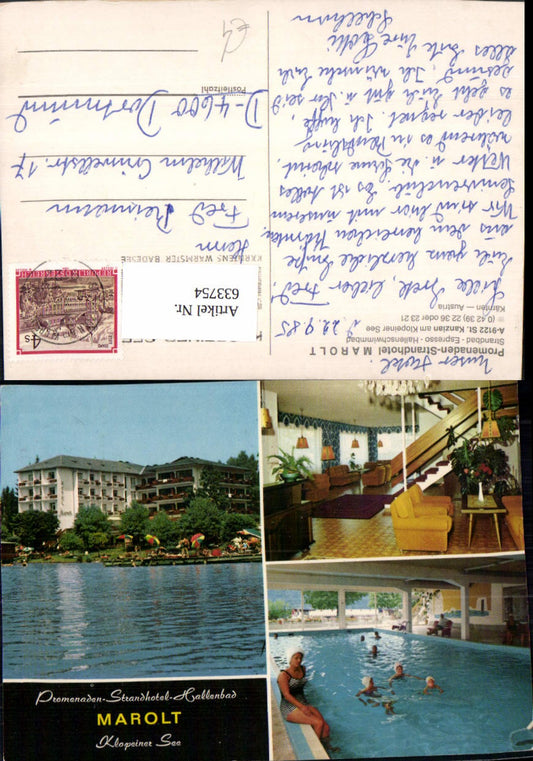 Unser Hotel.
Promenaden-Strandhotel MAROLT
Strandbad - Espresso - Hallenschwimmbad
A-9122 St. Kanzian am Klopeiner See
(0 42 39) 22 36 oder 23 21
Kärnten — Austria
d. 22.9.85
lieber Fred!
Euch ganz herzliche Grüße
aus dem herrlichen Kärnten.
Wir sind hier mit unserem
Es ist tolles
Wetter u. die Sonne scheint,
während es in
leider regnet. Ich hoffe,
es geht Euch gut u. Ihr seid
gesund. Ich wünsche Euch
alles Gute Eure
KÄRNTENS WÄRMSTER BADESEE
Herrn
Fred
Wilhelm Crüwellstr. 17
D-4600 Dortmund
Postleitzahl
REPUBLIK ÖSTERREICH
4 S
Artikel Nr.
633754
€4
Promenaden-Strandhotel-Hallenbad
MAROLT
Klopeiner See